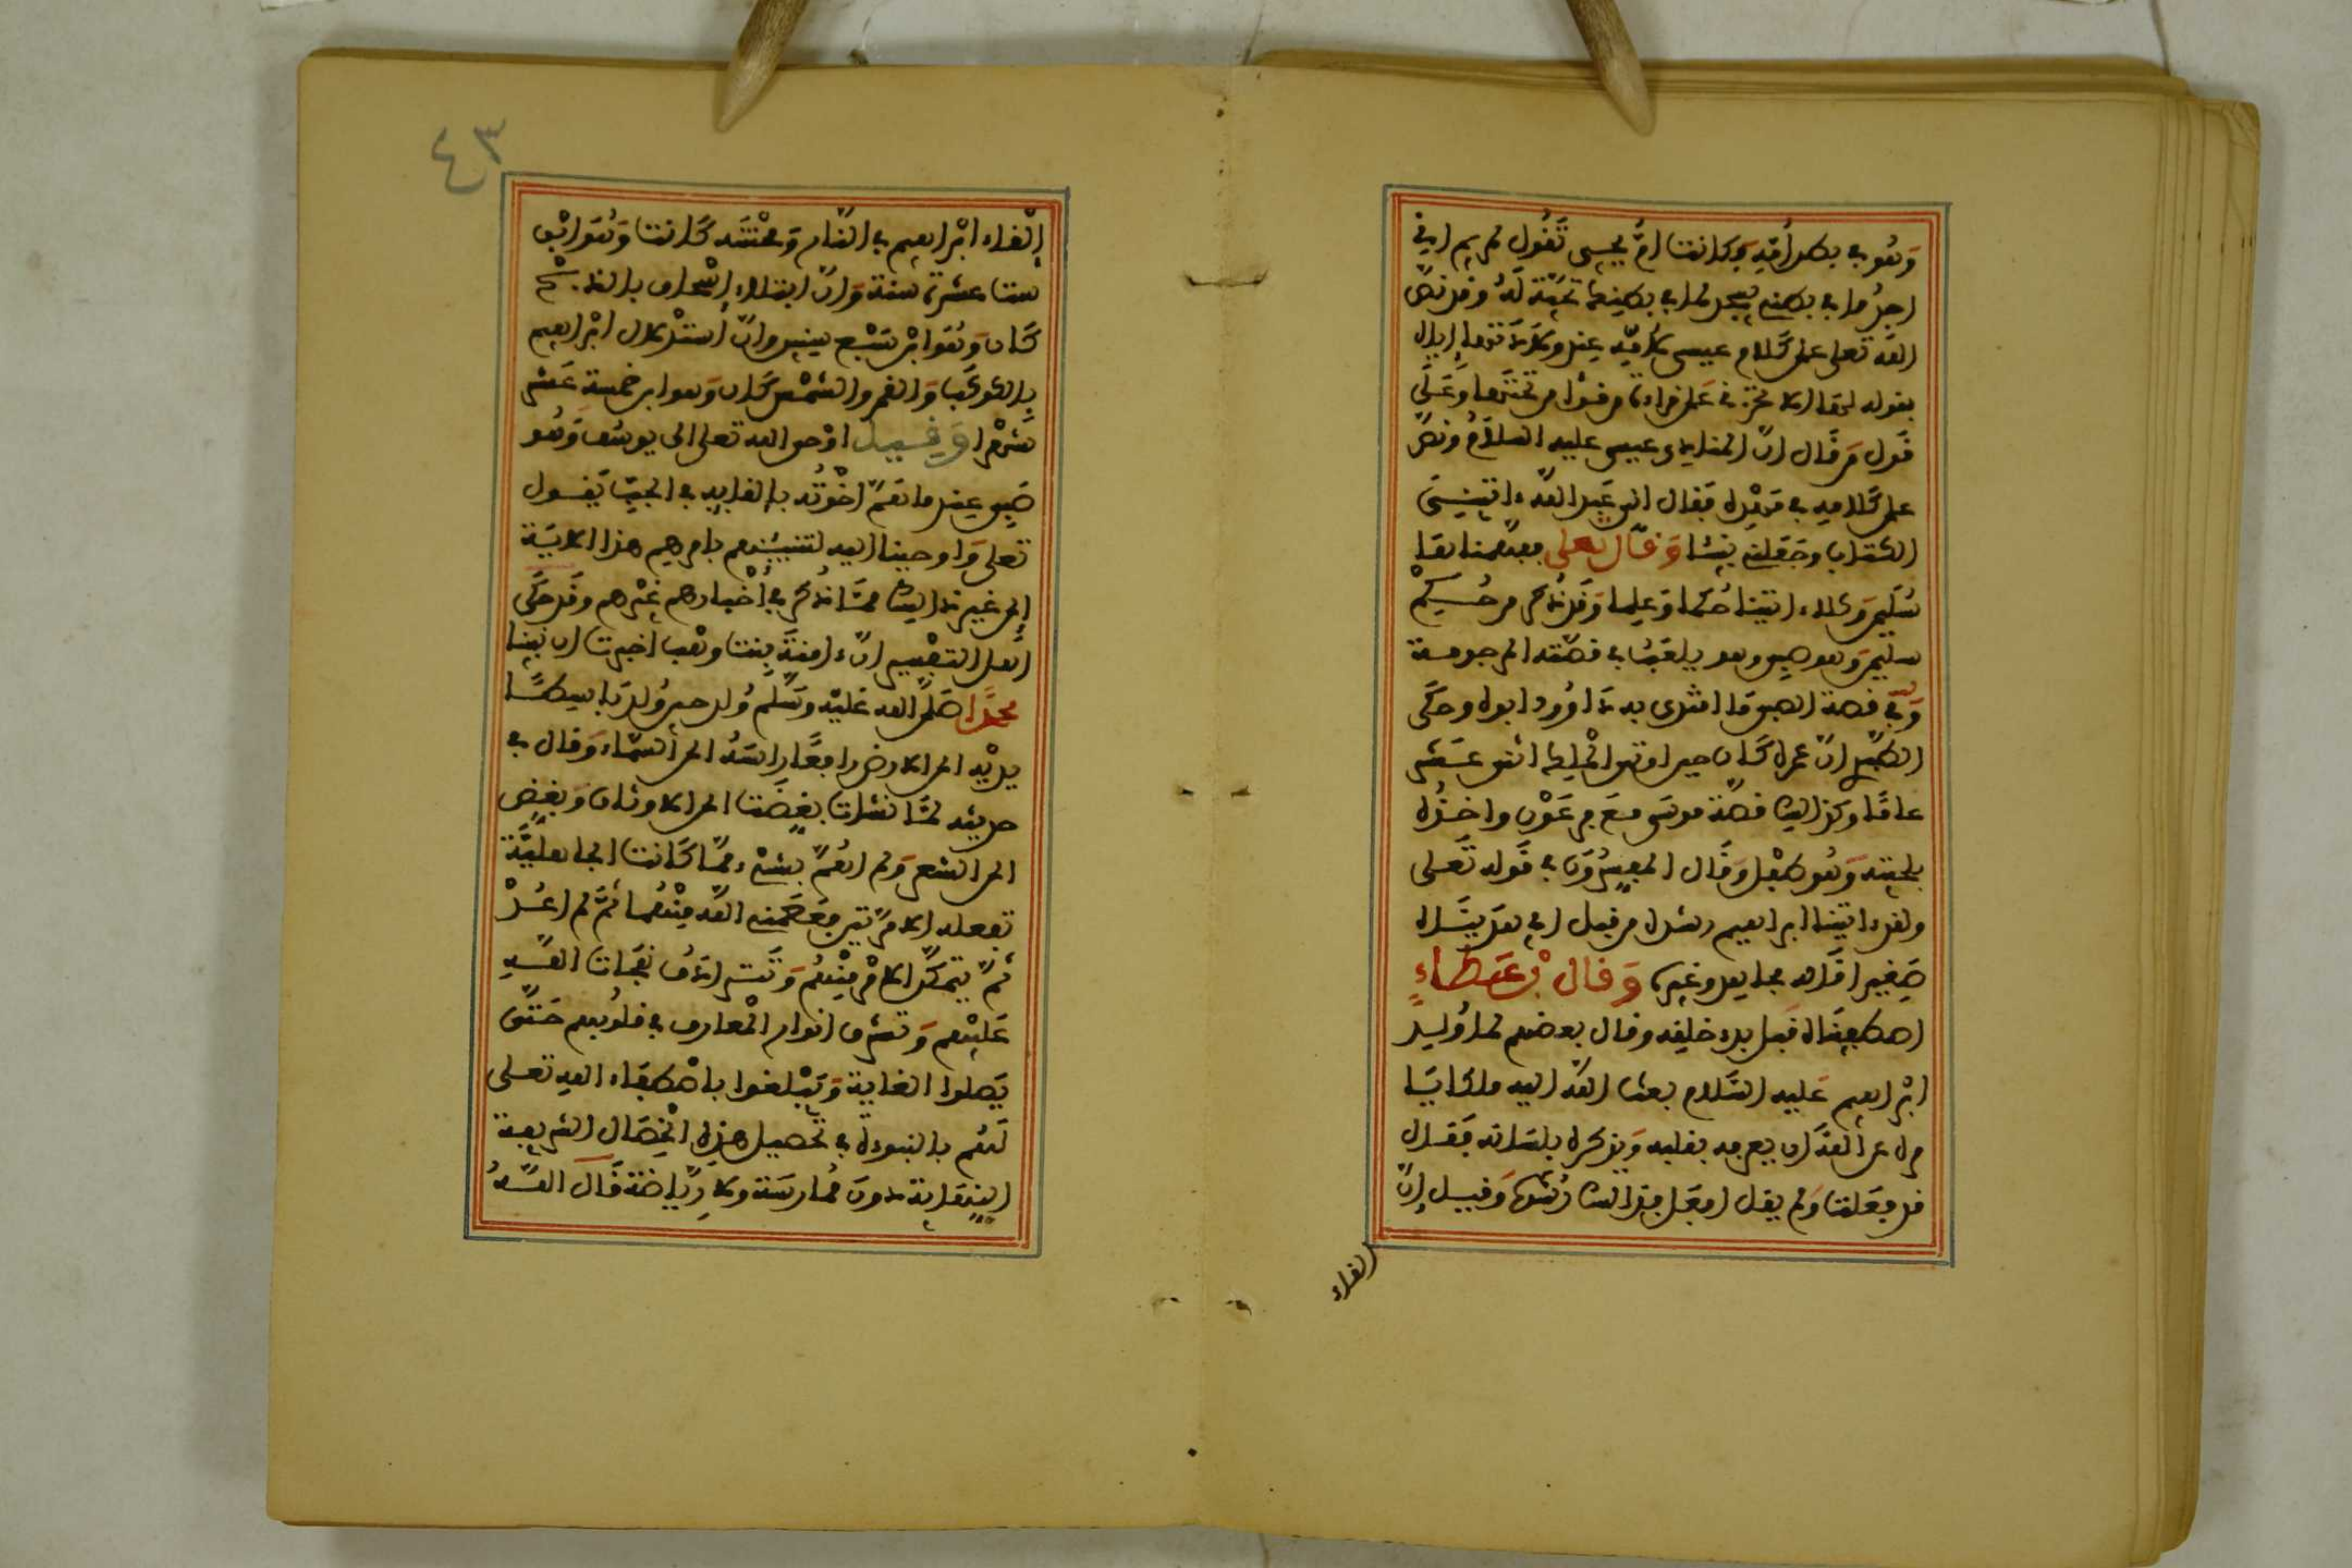 وهو في بطن أمه وكانت أم يحيى تقول لمريم إني
أجد ما في بطني يسجد لما في بطنك تحية له وقد نص
الله تعلى على كلام عيسى لأمه عند ولادتها إياه
بقوله لها ألا تحزني على قراءة من قرأ من تحتها وعلى
قول من قال إن المنادي عيسى عليه السلام ونص
على كلامه في مهده فقال إني عبد الله ءاتيني
الكتاب وجعلني نبيئا وقال تعلى ففهمناها
سليمن وكلا ءاتينا حكما وعلما وقد ذكر من حكم
سليمن وهو صبي وهو يلعب في قصة المرجومة
وفي قصة الصبي ما اقتدى به داوود أبوه وحكى
الطبري أن عمره كان حين أوتي الملك اثني عشر
عاما وكذلك قصة موسى مع فرعون وأخذه
بلحيته وهو طفل وقال المفسرون في قوله تعلى
ولقد ءاتينا إبراهيم رشده من قبل أي هديناه
صغيرا قاله مجاهد وغيره وقال بن عطاء
اصطفيناه قبل بدء خلقه وقال بعضهم لما ولد
إبراهيم عليه السلام بعث الله إليه ملكا
يأمره عن الله أن يعرفه بقلبه ويذكره بلسانه فقال
قد فعلت ولم يقل أفعل فذلك رشده وقيل إن
إلقاء
إلقاء إبراهيم في النار ومحنته كانت وهو ابن
ست عشرة سنة وأن ابتلاء إسحاق بالذبح
كان وهو ابن سبع سنين وأن استدلال إبراهيم
بالكوكب والقمر والشمس كان وهو ابن خمسة عشر
شهرا وقيل أوحى الله تعلى إلى يوسف وهو
صبي عند ما هم إخوته بإلقائه في الجب يقول
تعلى وأوحينا إليه لتنبئنهم بأمرهم هذا الآية
إلى غير ذلك مما ذكر في أخبارهم غيرهم وقد حكى
أهل التفسير أن ءامنة بنت وهب أخبرت أن نبينا
محمدا صلى الله عليه وسلم ولد حين ولد باسطا
يديه إلى الأرض رافعا رأسه إلى السماء وقال في
حديثه لما نشأت بغضت إلى الأوثان وبغض
إلى الشعر ولم أهم بشيء مما كانت الجاهلية
تفعله إلا مرتين فعصمني الله منهما ثم لم أعد
ثم يتمكن الأمر منهم وتترادف نفحات الله
عليهم وتشرق أنوار المعارف في قلوبهم حتى
يصلوا الغاية ويبلغوا باصطفاء الله تعلى
لهم بالنبوءة في تحصيل هذه الخصال الشريفة
النهاية دون ممارسة ولا رياضة قال الله
٤٣